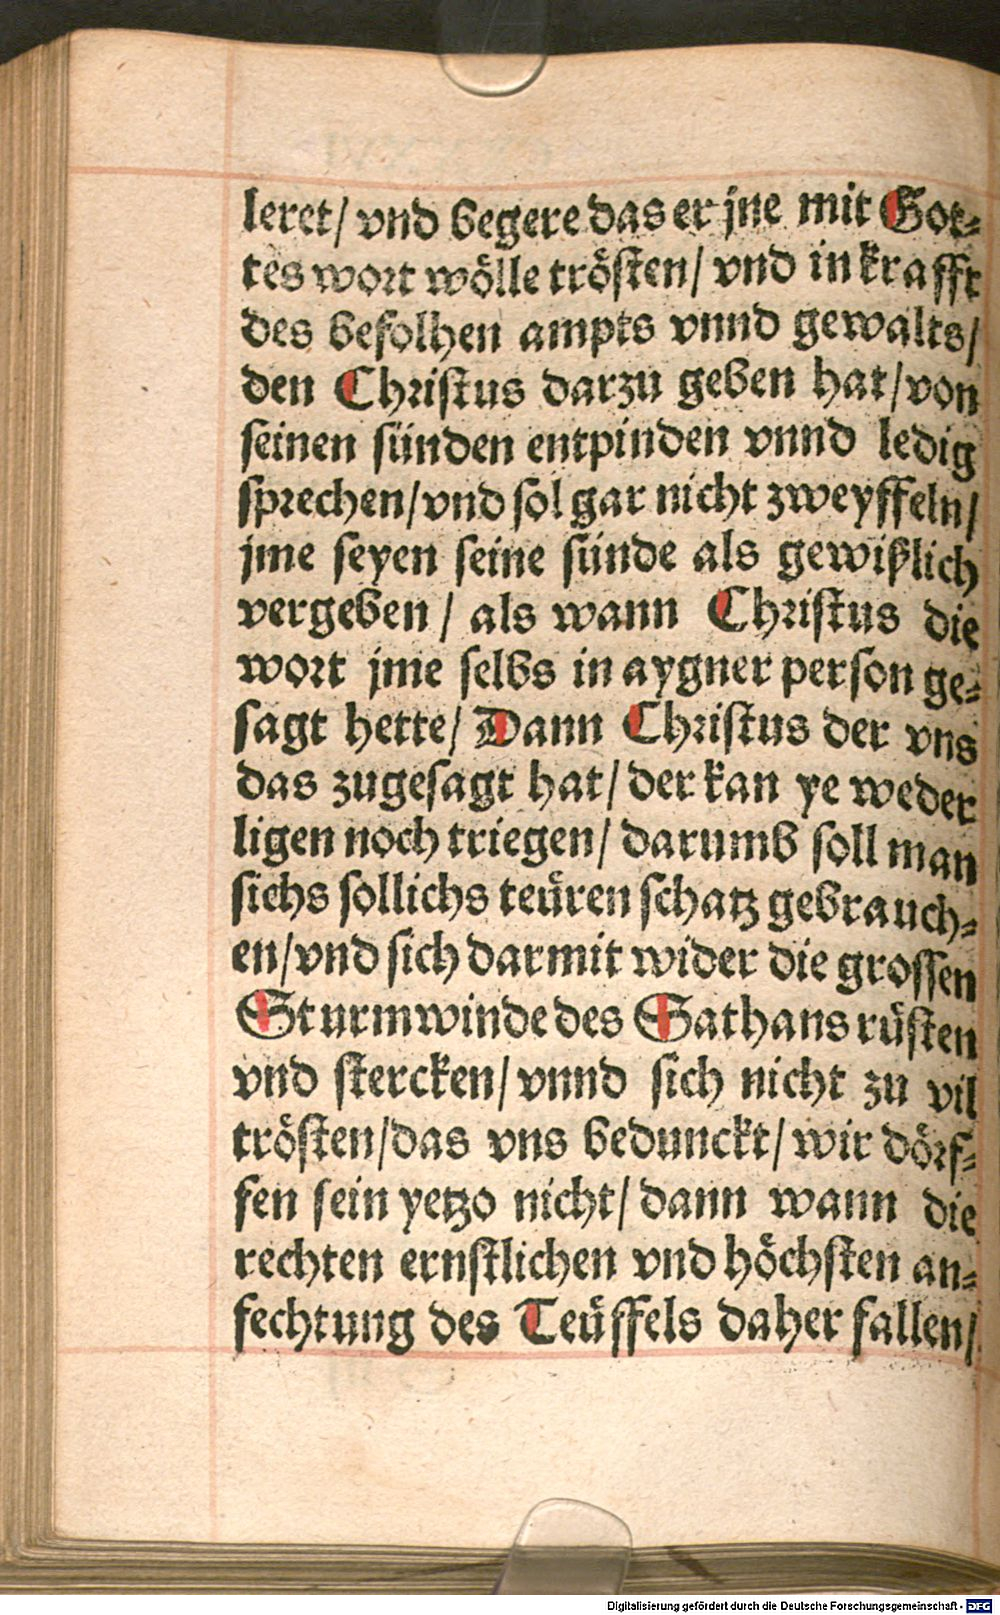 leret/ vnd begere das er jne mit Got⸗
tes wort wölle trösten/ vnd in krafft
des befolhen ampts vnnd gewalts/
den Christus darzu geben hat/ von
seinen sünden entpinden vnnd ledig
sprechen/ vnd sol gar nicht zweyffeln/
jme seyen seine sünde als gewißlich
vergeben/ als wann Christus die
wort jme selbs in aygner person ge⸗
sagt hette/ Dann Christus der vns
das zugesagt hat/ der kan ye weder
ligen noch triegen/ darumb soll man
sichs sollichs teüren schatz gebrauch⸗
en/ vnd sich darmit wider die grossen
Sturmwinde des Sathans rüsten
vnd stercken/ vnnd sich nicht zu vil
trösten/ das vns bedunckt/ wir dörf⸗
fen sein yetzo nicht/ dann wann die
rechten ernstlichen vnd höchsten an⸗
fechtung des Teüffels daher fallen/
Digitalisierung gefördert durch die Deutsche Forschungsgemeinschaft - DFG